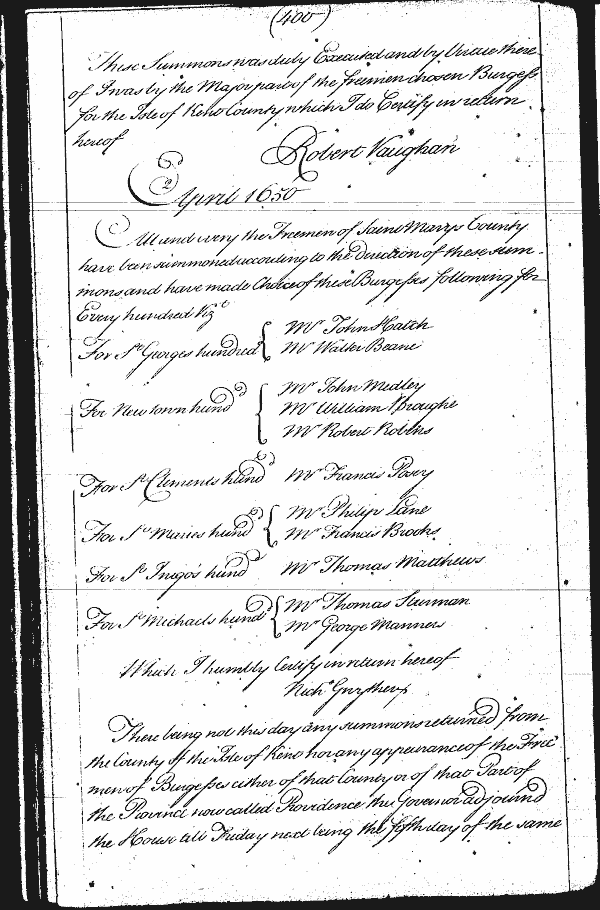 (400)
These Summons was duly Executed and by Virtue there
of I was by the Major part of the freemen chosen Burgess
for the Isle of Kent County which I do Certify in return
hereof
Robert Vaughan
2 April 1650
All and every the Freemen of Saint Marys County
have been summoned according to the Direction of these sum-
mons and have made Choice of these Burgesses following for
Every hundred Vizt
For St Georges hundred { Mr John Hatch
Mr Walter Beane
For Newtown hund { Mr John Medley
Mr William Broughe
Mr Robert Robins
For St Clements hund Mr Francis Posey
For St Maries hund { Mr Philip Lane
Mr Francis Brooks
For St Inigo's hund Mr Thomas Matthews
For St Michaels hund { Mr Thomas Sturman
Mr George Manners
Which I humbly Certify in return hereof
Nichs Gwyther
There being not this day any summons returned from
the County of the Isle of Kent nor any appearance of the Free
men or Burgesses either of that County or of that Part of
the Province now called Providence the Governor adjournd
the House till Friday next being the fifth day of the same